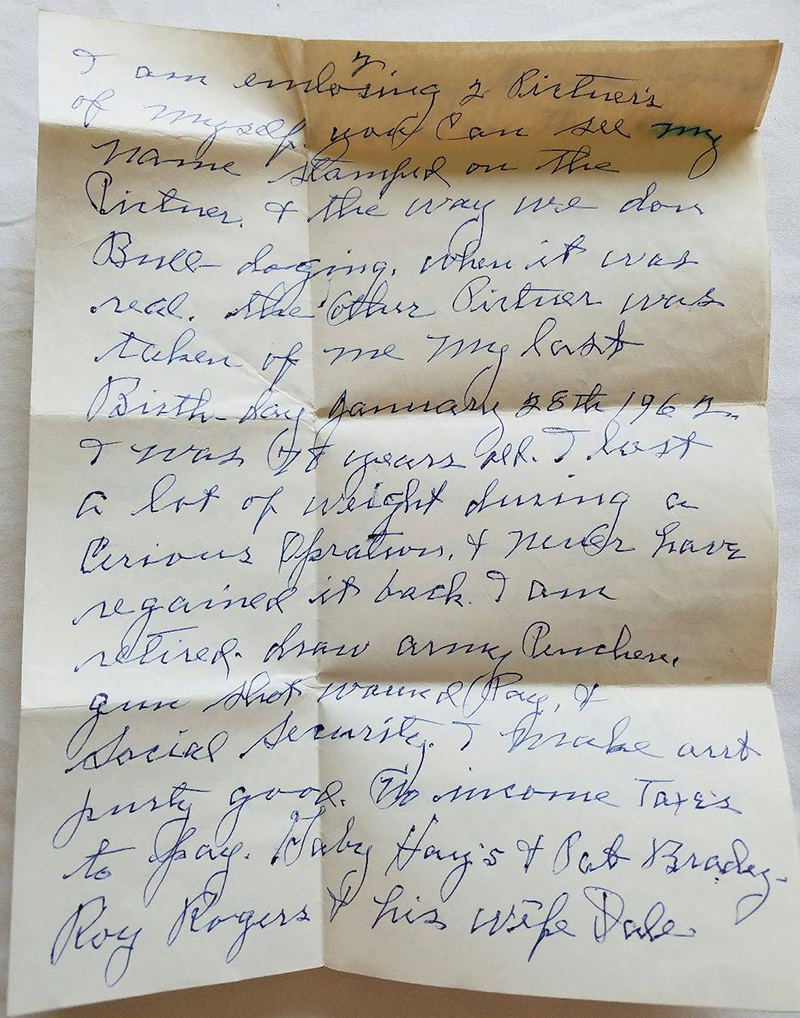 I am enclosing 2 Pictuers
of myself. you Can see my
name stamped on the
Pictuer. & the way we don
Bull-doging. when it was
real. the Other Pictuer was
taken of me my last
Birth-day January 28th 1962.
I was 78 years old. I lost
a lot of weight during a
Cerious Opration. & never have
regained it back. I am
retired. draw army Penchen.
gun shot wound Pay. &
Social Security. I make out
purty good. No income Taxes
to pay. Gaby Hay's & Pat Bradey-
Roy Rogers & his wife Dale